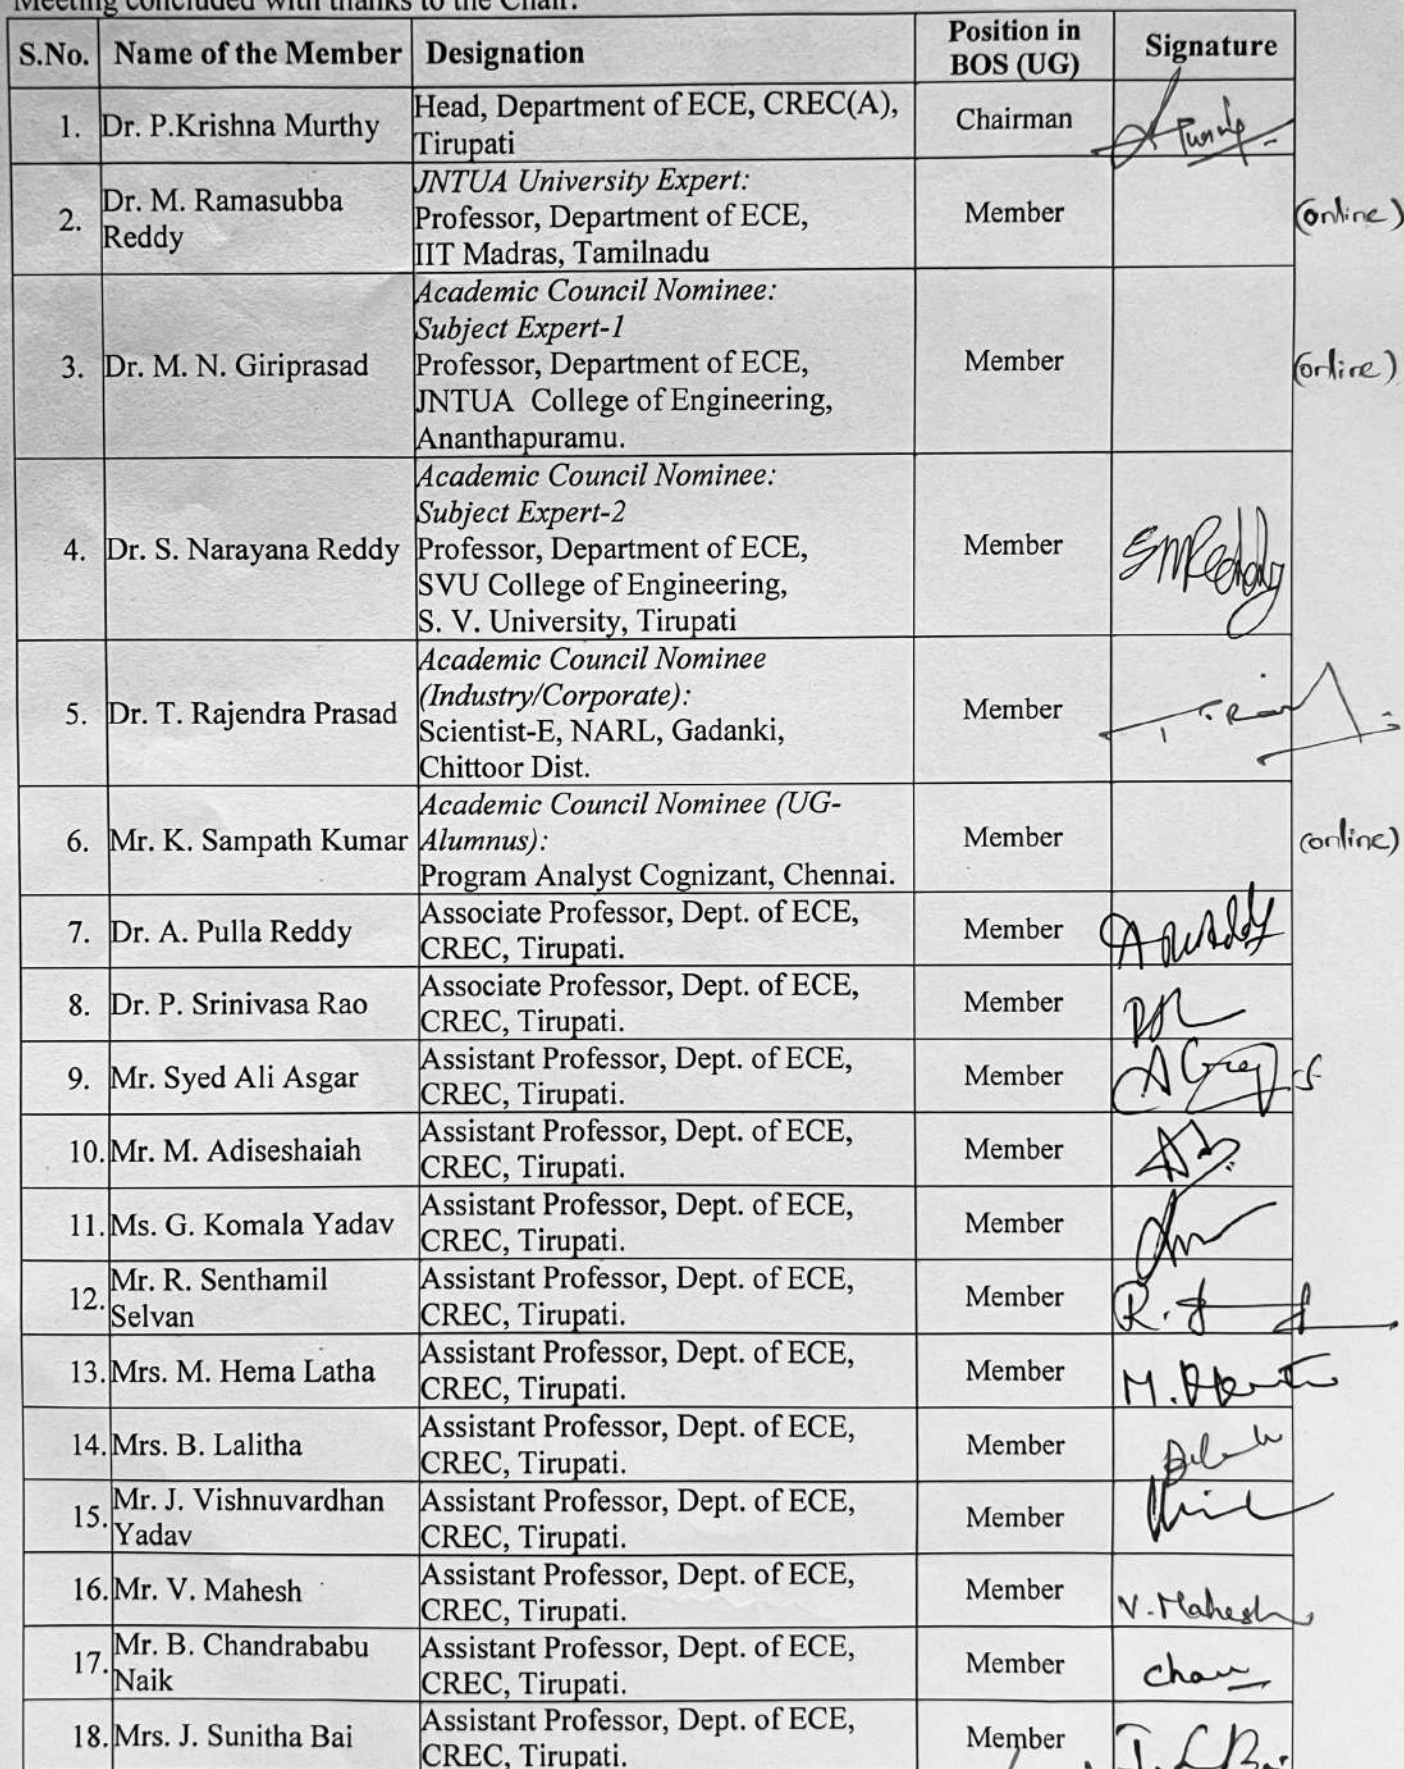 Meeting concluded with thanks to the Chair.
S.No. Name of the Member Designation Position in BOS (UG) Signature
1. Dr. P.Krishna Murthy Head, Department of ECE, CREC(A), Chairman
Tirupati
2. Dr. M. Ramasubba Reddy JNTUA University Expert: Member (online)
Professor, Department of ECE,
IIT Madras, Tamilnadu
3. Dr. M. N. Giriprasad Academic Council Nominee: Member (online)
Subject Expert-1
Professor, Department of ECE,
JNTUA College of Engineering,
Ananthapuramu.
4. Dr. S. Narayana Reddy Academic Council Nominee: Member
Subject Expert-2
Professor, Department of ECE,
SVU College of Engineering,
S. V. University, Tirupati
5. Dr. T. Rajendra Prasad Academic Council Nominee Member
(Industry/Corporate):
Scientist-E, NARL, Gadanki,
Chittoor Dist.
6. Mr. K. Sampath Kumar Academic Council Nominee (UG- Member (online)
Alumnus):
Program Analyst Cognizant, Chennai.
7. Dr. A. Pulla Reddy Associate Professor, Dept. of ECE, Member
CREC, Tirupati.
8. Dr. P. Srinivasa Rao Associate Professor, Dept. of ECE, Member
CREC, Tirupati.
9. Mr. Syed Ali Asgar Assistant Professor, Dept. of ECE, Member
CREC, Tirupati.
10. Mr. M. Adiseshaiah Assistant Professor, Dept. of ECE, Member
CREC, Tirupati.
11. Ms. G. Komala Yadav Assistant Professor, Dept. of ECE, Member
CREC, Tirupati.
12. Mr. R. Senthamil Selvan Assistant Professor, Dept. of ECE, Member
CREC, Tirupati.
13. Mrs. M. Hema Latha Assistant Professor, Dept. of ECE, Member
CREC, Tirupati.
14. Mrs. B. Lalitha Assistant Professor, Dept. of ECE, Member
CREC, Tirupati.
15. Mr. J. Vishnuvardhan Yadav Assistant Professor, Dept. of ECE, Member
CREC, Tirupati.
16. Mr. V. Mahesh Assistant Professor, Dept. of ECE, Member V. Mahesh
CREC, Tirupati.
17. Mr. B. Chandrababu Naik Assistant Professor, Dept. of ECE, Member
CREC, Tirupati.
18. Mrs. J. Sunitha Bai Assistant Professor, Dept. of ECE, Member
CREC, Tirupati.